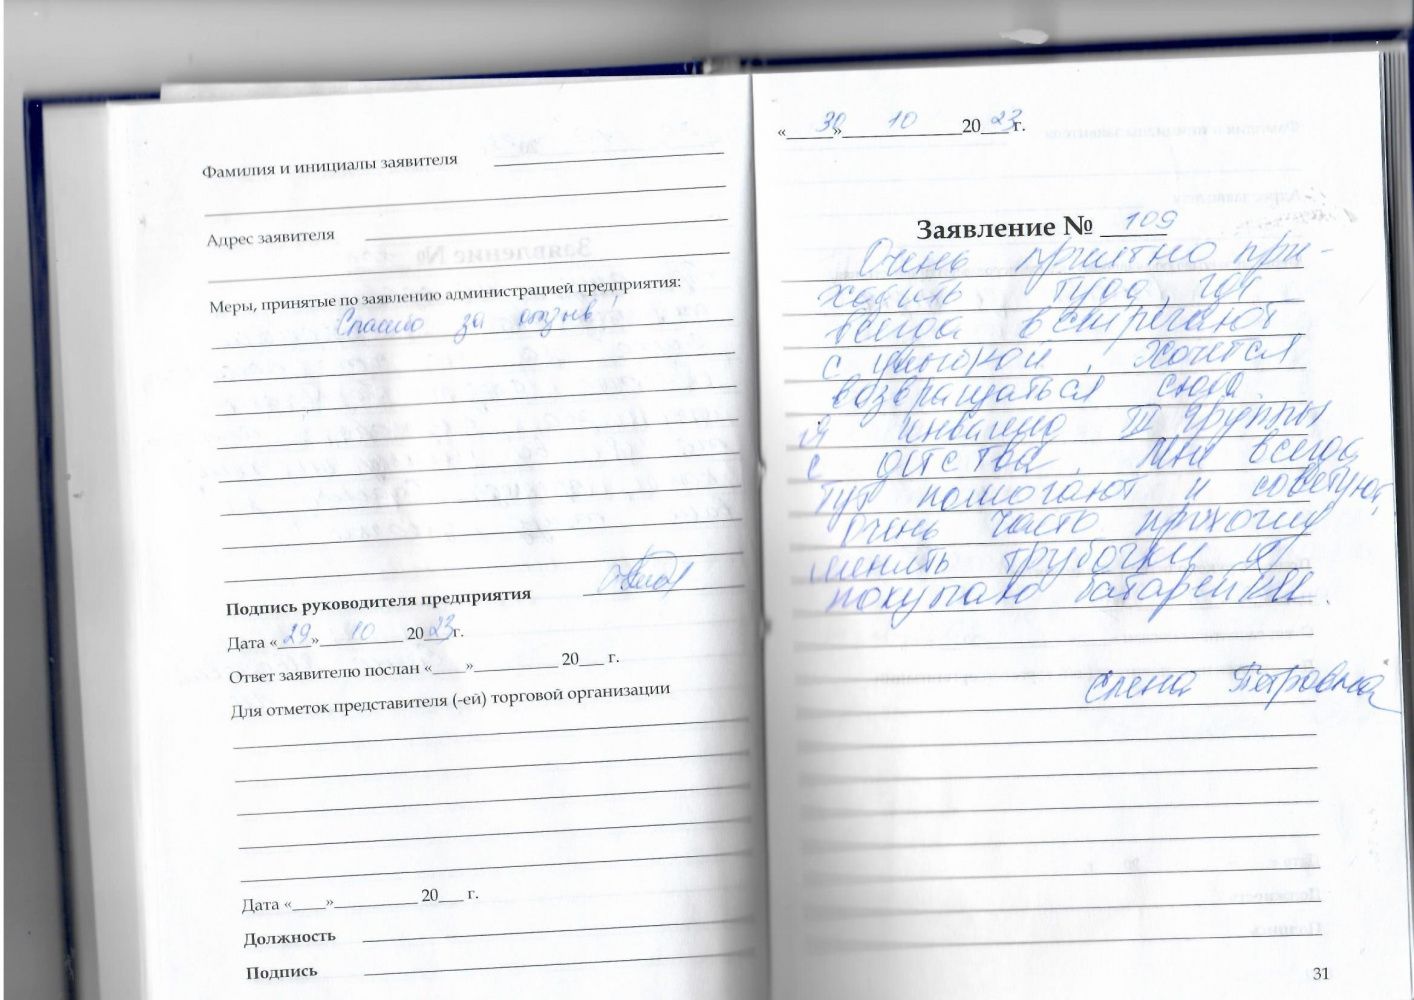 Фамилия и инициалы заявителя
Адрес заявителя
Меры, принятые по заявлению администрацией предприятия:
Спасибо за отзыв!
Подпись руководителя предприятия
Дата «29» 10 2023г.
Ответ заявителю послан «___»__________ 20___ г.
Для отметок представителя (-ей) торговой организации
Дата «____»__________ 20___ г.
Должность
Подпись
«30» 10 2023г.
Заявление № 109
Очень приятно при-
ходить туда, где
всегда встречают
с улыбкой, хочется
возвращаться сюда.
Я инвалид III группы
с детства. Мне всегда
тут помогают и советуют,
очень часто прихожу
менять трубочки и
покупаю батарейки.
Елена Петровна
31